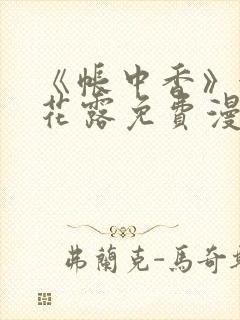 《帳中香》
花露免費漫
弗蘭克-馬奇